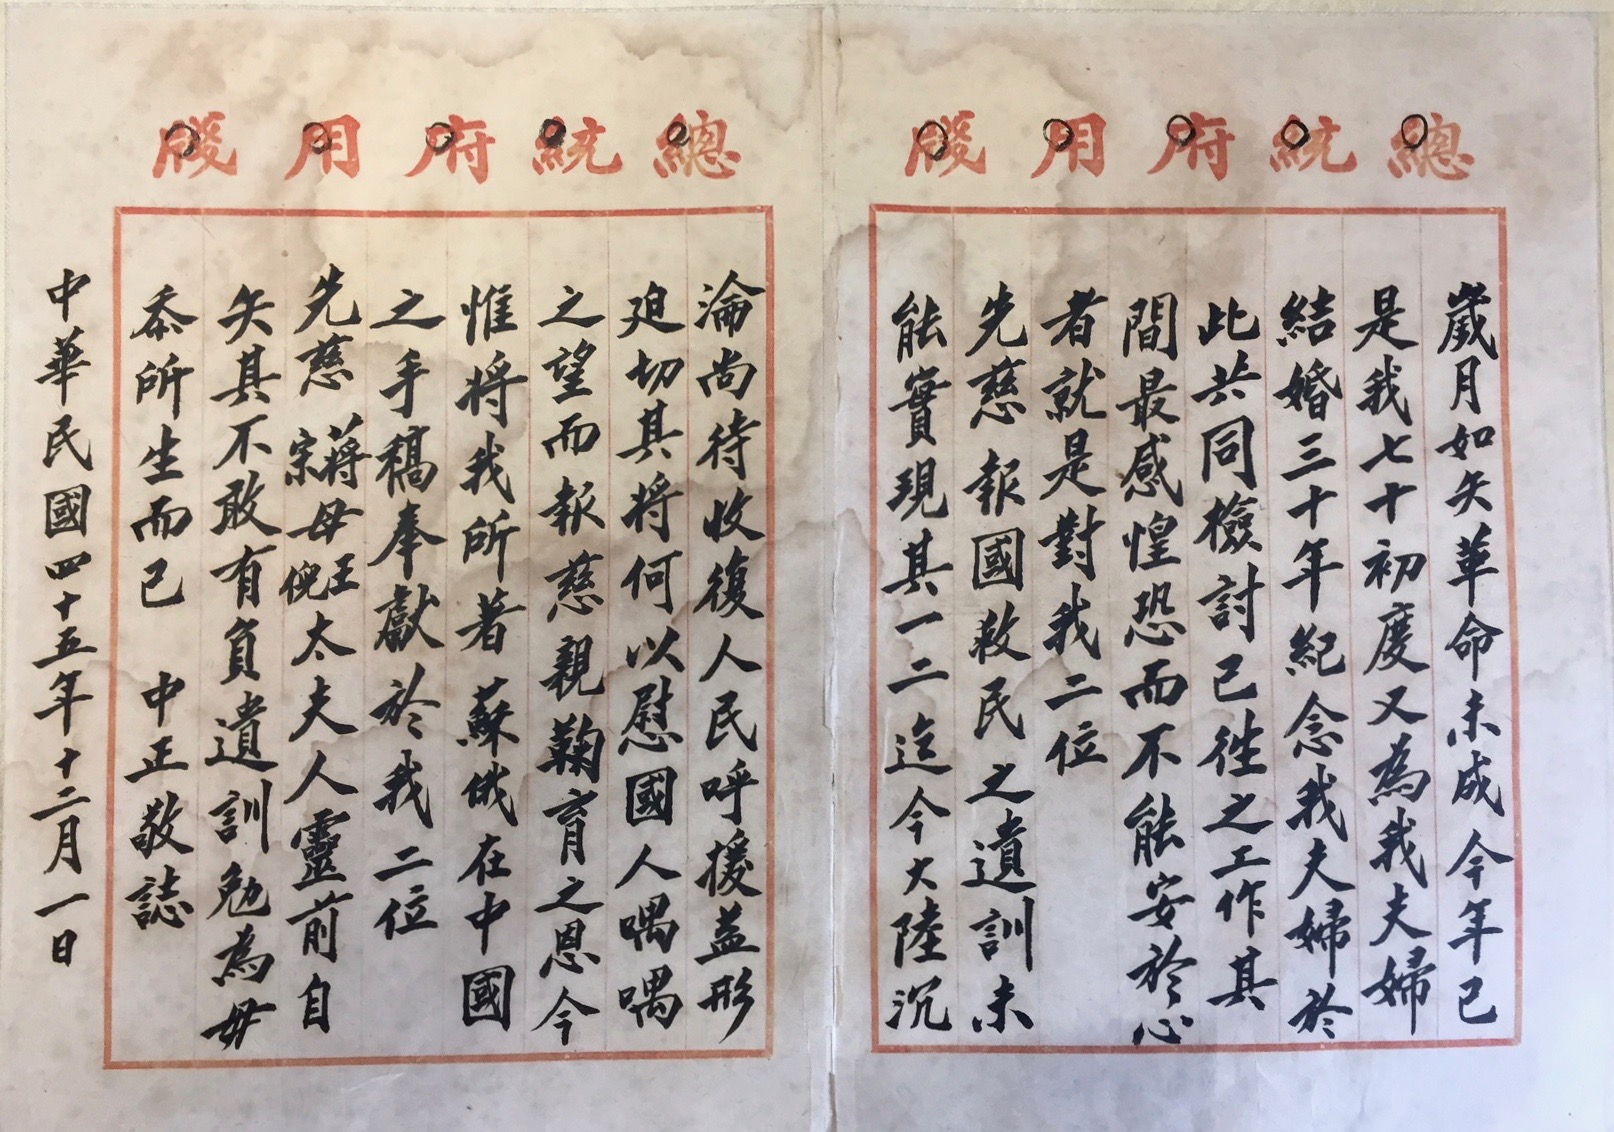 總統府用牋
歲月如矢革命未成今年已
是我七十初度又為我夫婦
結婚三十年紀念我夫婦於
此共同檢討已往之工作其
間最感惶恐而不能安於心
者就是對我二位
先慈報國救民之遺訓未
能實現其一二迄今大陸沉
總統府用牋
淪尚待收復人民呼援益形
迫切其將何以慰國人喁喁
之望而報慈親鞠育之恩今
惟將我所著蘇俄在中國
之手稿奉獻於我二位
先慈蔣母王太夫人宋母倪太夫人靈前自
矢其不敢有負遺訓勉為毋
忝所生而已 中正敬誌
中華民國四十五年十二月一日